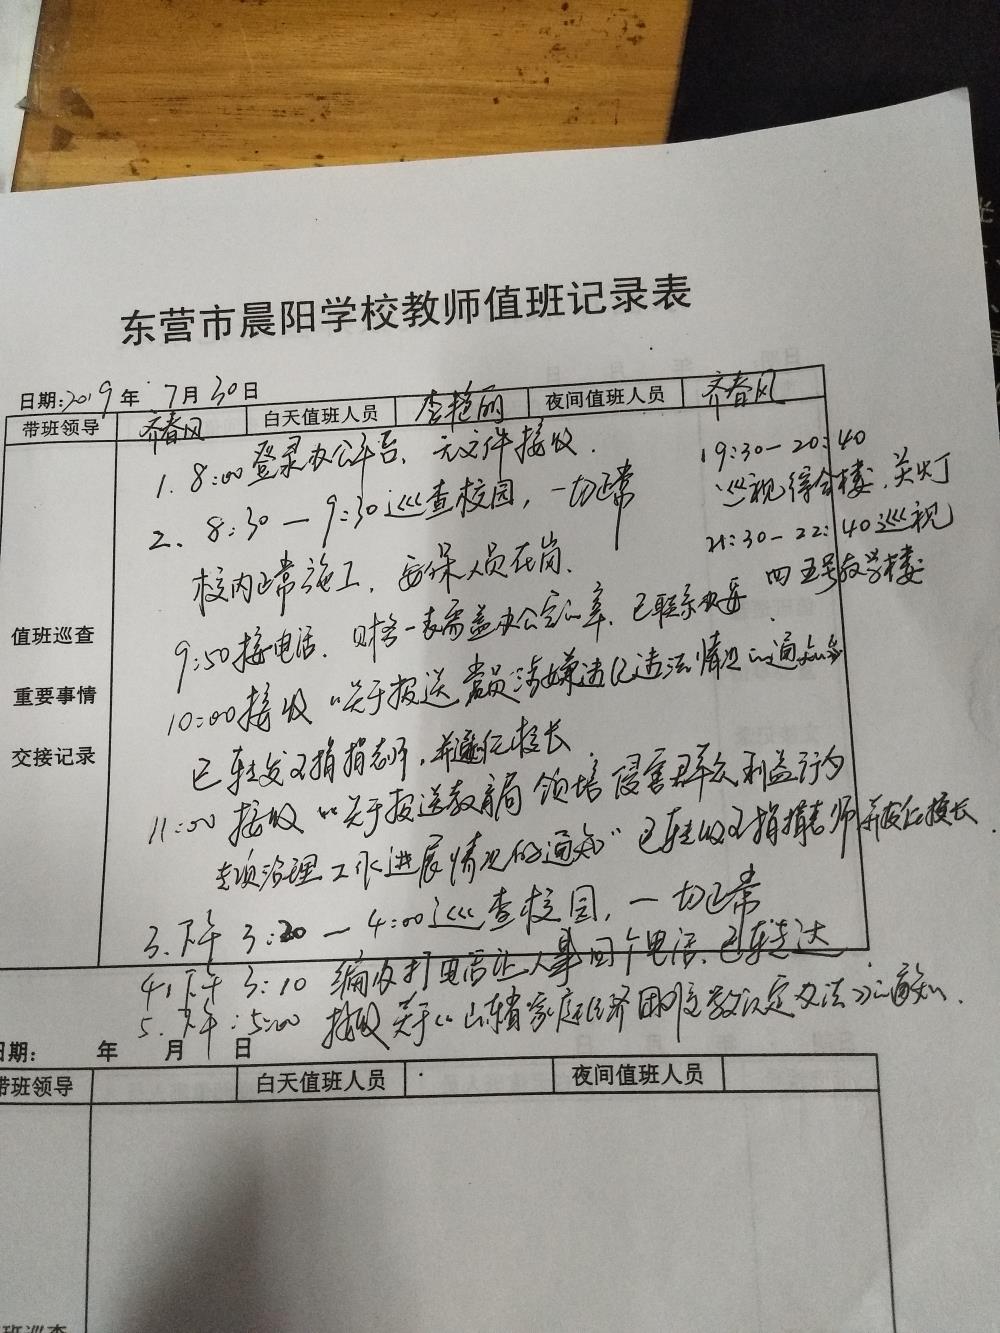 东营市晨阳学校教师值班记录表
日期:2019年 7月30日
带班领导 齐春风 白天值班人员 李艳丽 夜间值班人员 齐春风
值班巡查
重要事情
交接记录
1. 8:00登录办公平台,无文件接收.
2、8:30—9:30巡查校园,一切正常
校内正常施工,安保人员在岗.
9:50接电话.财务一表需盖办公室公章,已联系办妥
10:00接收"关于报送党员涉嫌违纪违法情况的通知"
已转发 捐捐老师,并 任校长
11:00接收"关于报送教育局 领 侵害群众利益行为
专项治理工作进展情况的通知"已转 捐捐老师并 任校长
3.下午3:20—4:00巡查校园,一切正常
4,下午3:10 打电话让人事回个电话.已转达
5.下午:5:00 接收关于《山东省家庭经济困难 认定办法》的通知.
19:30—20:40
巡视综合楼,关灯
21:30—22:40巡视
四五号教学楼
日期: 年 月 日
带班领导 白天值班人员 夜间值班人员
班巡查